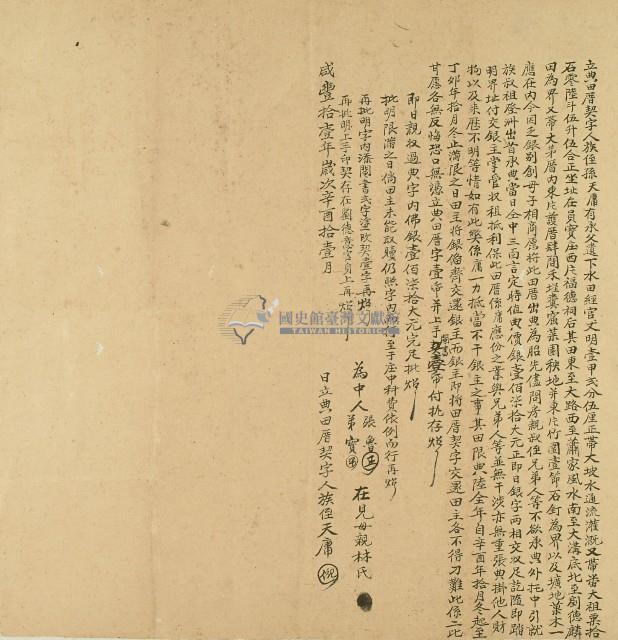 立典田厝契字人族侄孫天庸有承父遺下水田經官丈明壹甲弍分伍厘正帶大坡水通流灌溉又帶番大租粟拾
石零陸斗伍升伍合正坐址在員寶庄西片福德祠后其田東至大路西至蕭家風水南至大溝底北至劉德麟
田為界又帶大茅厝內東片護厝肆間禾埕糞窖菜園秧地并東片竹圍壹節石釘為界以及壙地菓木一
應在內今因乏銀別創母子相商愿將此田厝出典為胎先儘問房親叔侄兄弟人等不欲承典外托中引就
族叔祖 出首承典當日仝中三面言定時值典價銀壹佰柒拾大元正即日銀字兩相交收足訖隨即踏
明界址付交銀主掌管收租抵利保此田厝係庸應份之業與兄弟人等並無干涉亦無重張典掛他人財
物以及來歷不明等情如有此弊係庸一力抵當不干銀主之事其田限典陸全年自辛酉年拾月冬起至
丁卯年拾月冬止滿限之日田主將銀偹齊交還銀主而銀主即將田厝契字交還田主各不得刁難此係二比
甘愿各無反悔恐口無憑立典田厝字壹帋并上手鬮書契壹帋付执存炤
即日親收過典字內佛銀壹佰柒拾大元完足批炤
批明限滿之日倘田主未能取贖仍照字內 至于庄中科費依例而行再炤
再批明字內添鬮書弍字塗改契壹字再炤
再批明上手印契存在劉德 身上再炤
為中人 張
弟寶
在見母親林氏
咸豐拾壹年歲次辛酉拾壹月 日立典田厝契字人族侄天庸
國史館臺灣文獻館
TAIWAN HISTORICA